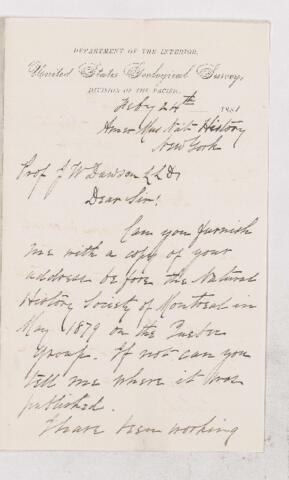 DEPARTMENT OF THE INTERIOR.
United States Geological Survey,
DIVISION OF THE PACIFIC.
Feby 24th 1881
Amer Mus Nat History
New York
Prof J W Dawson LLD,
Dear Sir!
Can you furnish
me with a copy of your
address before the Natural
History Society of Montreal in
May 1879 on the Quebec
Group. If not can you
tell me where it was
published.
I have been working